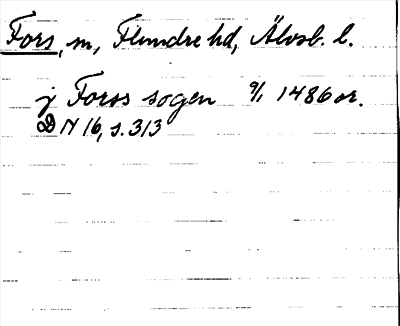 Fors, sn, Flundre hd, Älvsb. l.
j Forss sogen 9/1 1486 or.
DN 16, s. 313